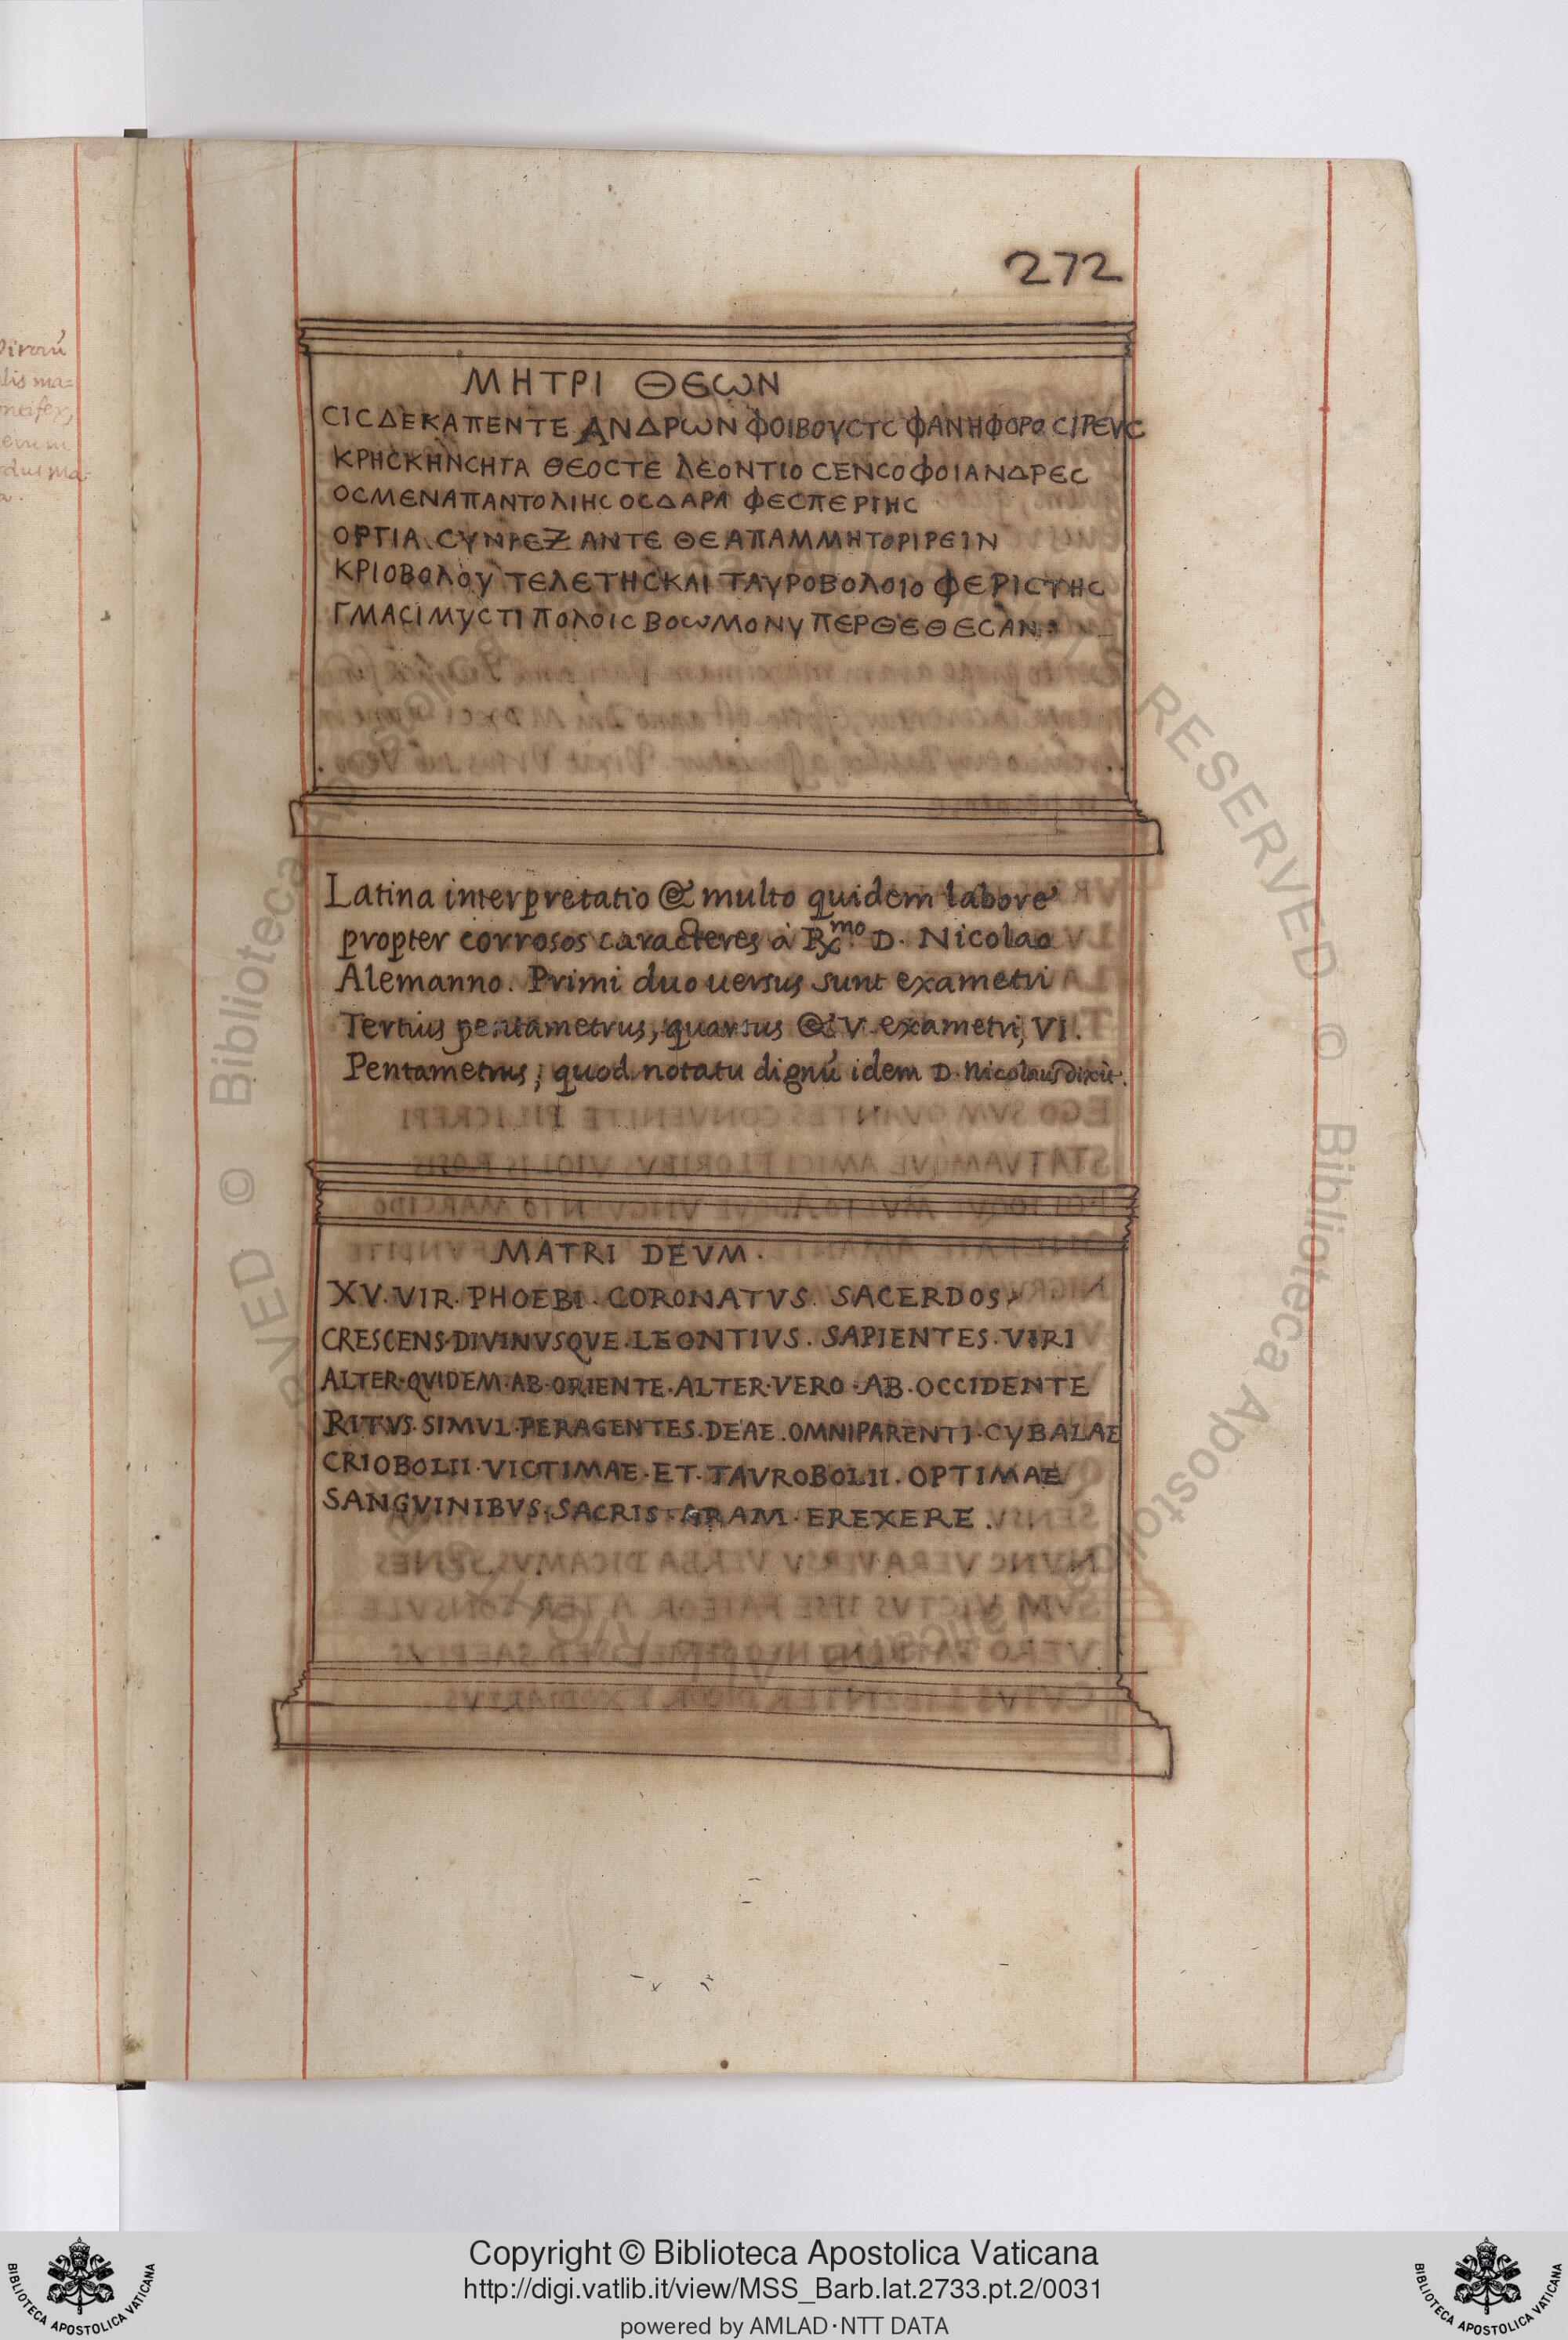 272
ΜΗΤΡΙ ΘΕωΝ
CΙCΔΕΚΑΠΕΝΤΕ ΑΝΔΡωΝ ΦΟΙΒΟΥCΤC ΦΑΝΗΦΟΡΟ CΙΡΕVC
ΚΡΗCΚΗΝCΗΓΑ ΘΕΟCΤΕ ΛΕΟΝΤΙΟ CΕΝCΟΦΟΙΑΝΔΡΕC
ΟCΜΕΝΑΠΑΝΤΟΛΙΗC ΟCΔΑΡΑ ΦΕCΠΕΡΙΗC
ΟΡΓΙΑ CΥΝΡΕΖΑΝΤΕ ΘΕΑΠΑΜΜΗΤΟΡΙΡΕΙΝ
ΚΡΙΟΒΟΛΟΥ ΤΕΛΕΤΗCΚΑΙ ΤΑΥΡΟΒΟΛΟΙΟ ΦΕΡΙCΤΗC
ΓΜΑCΙΜΥCΤΙ ΠΟΛΟΙC ΒΟωΜΟΝΥ ΠΕΡΘΕΘΕCΑΝ
Latina interpretatio & multo quidem labore
propter corrosos caracteres à Rx.mo D. Nicolao
Alemanno. Primi duo uersus sunt exametri
Tertius pentametrus, quartus & V. exametri, VI.
Pentametrus; quod notatu dignú idem D. Nicolaus dixit.
MATRI DEVM.
XV. VIR. PHOEBI. CORONATVS. SACERDOS,
CRESCENS.DIVINVSQVE.LEONTIVS. SAPIENTES.VIRI
ALTER.QVIDEM.AB.ORIENTE.ALTER.VERO.AB.OCCIDENTE
RITVS.SIMVL.PERAGENTES.DEAE.OMNIPARENTI.CYBALAE
CRIOBOLII.VICTIMAE.ET.TAVROBOLII.OPTIMAE
SANGVINIBVS.SACRIS.ARAM.EREXERE.
RESERVED © Biblioteca Apostolica
Copyright © Biblioteca Apostolica Vaticana
http://digi.vatlib.it/view/MSS_Barb.lat.2733.pt.2/0031
powered by AMLAD·NTT DATA
BIBLIOTECA APOSTOLICA VATICANA
BIBLIOTECA APOSTOLICA VATICANA